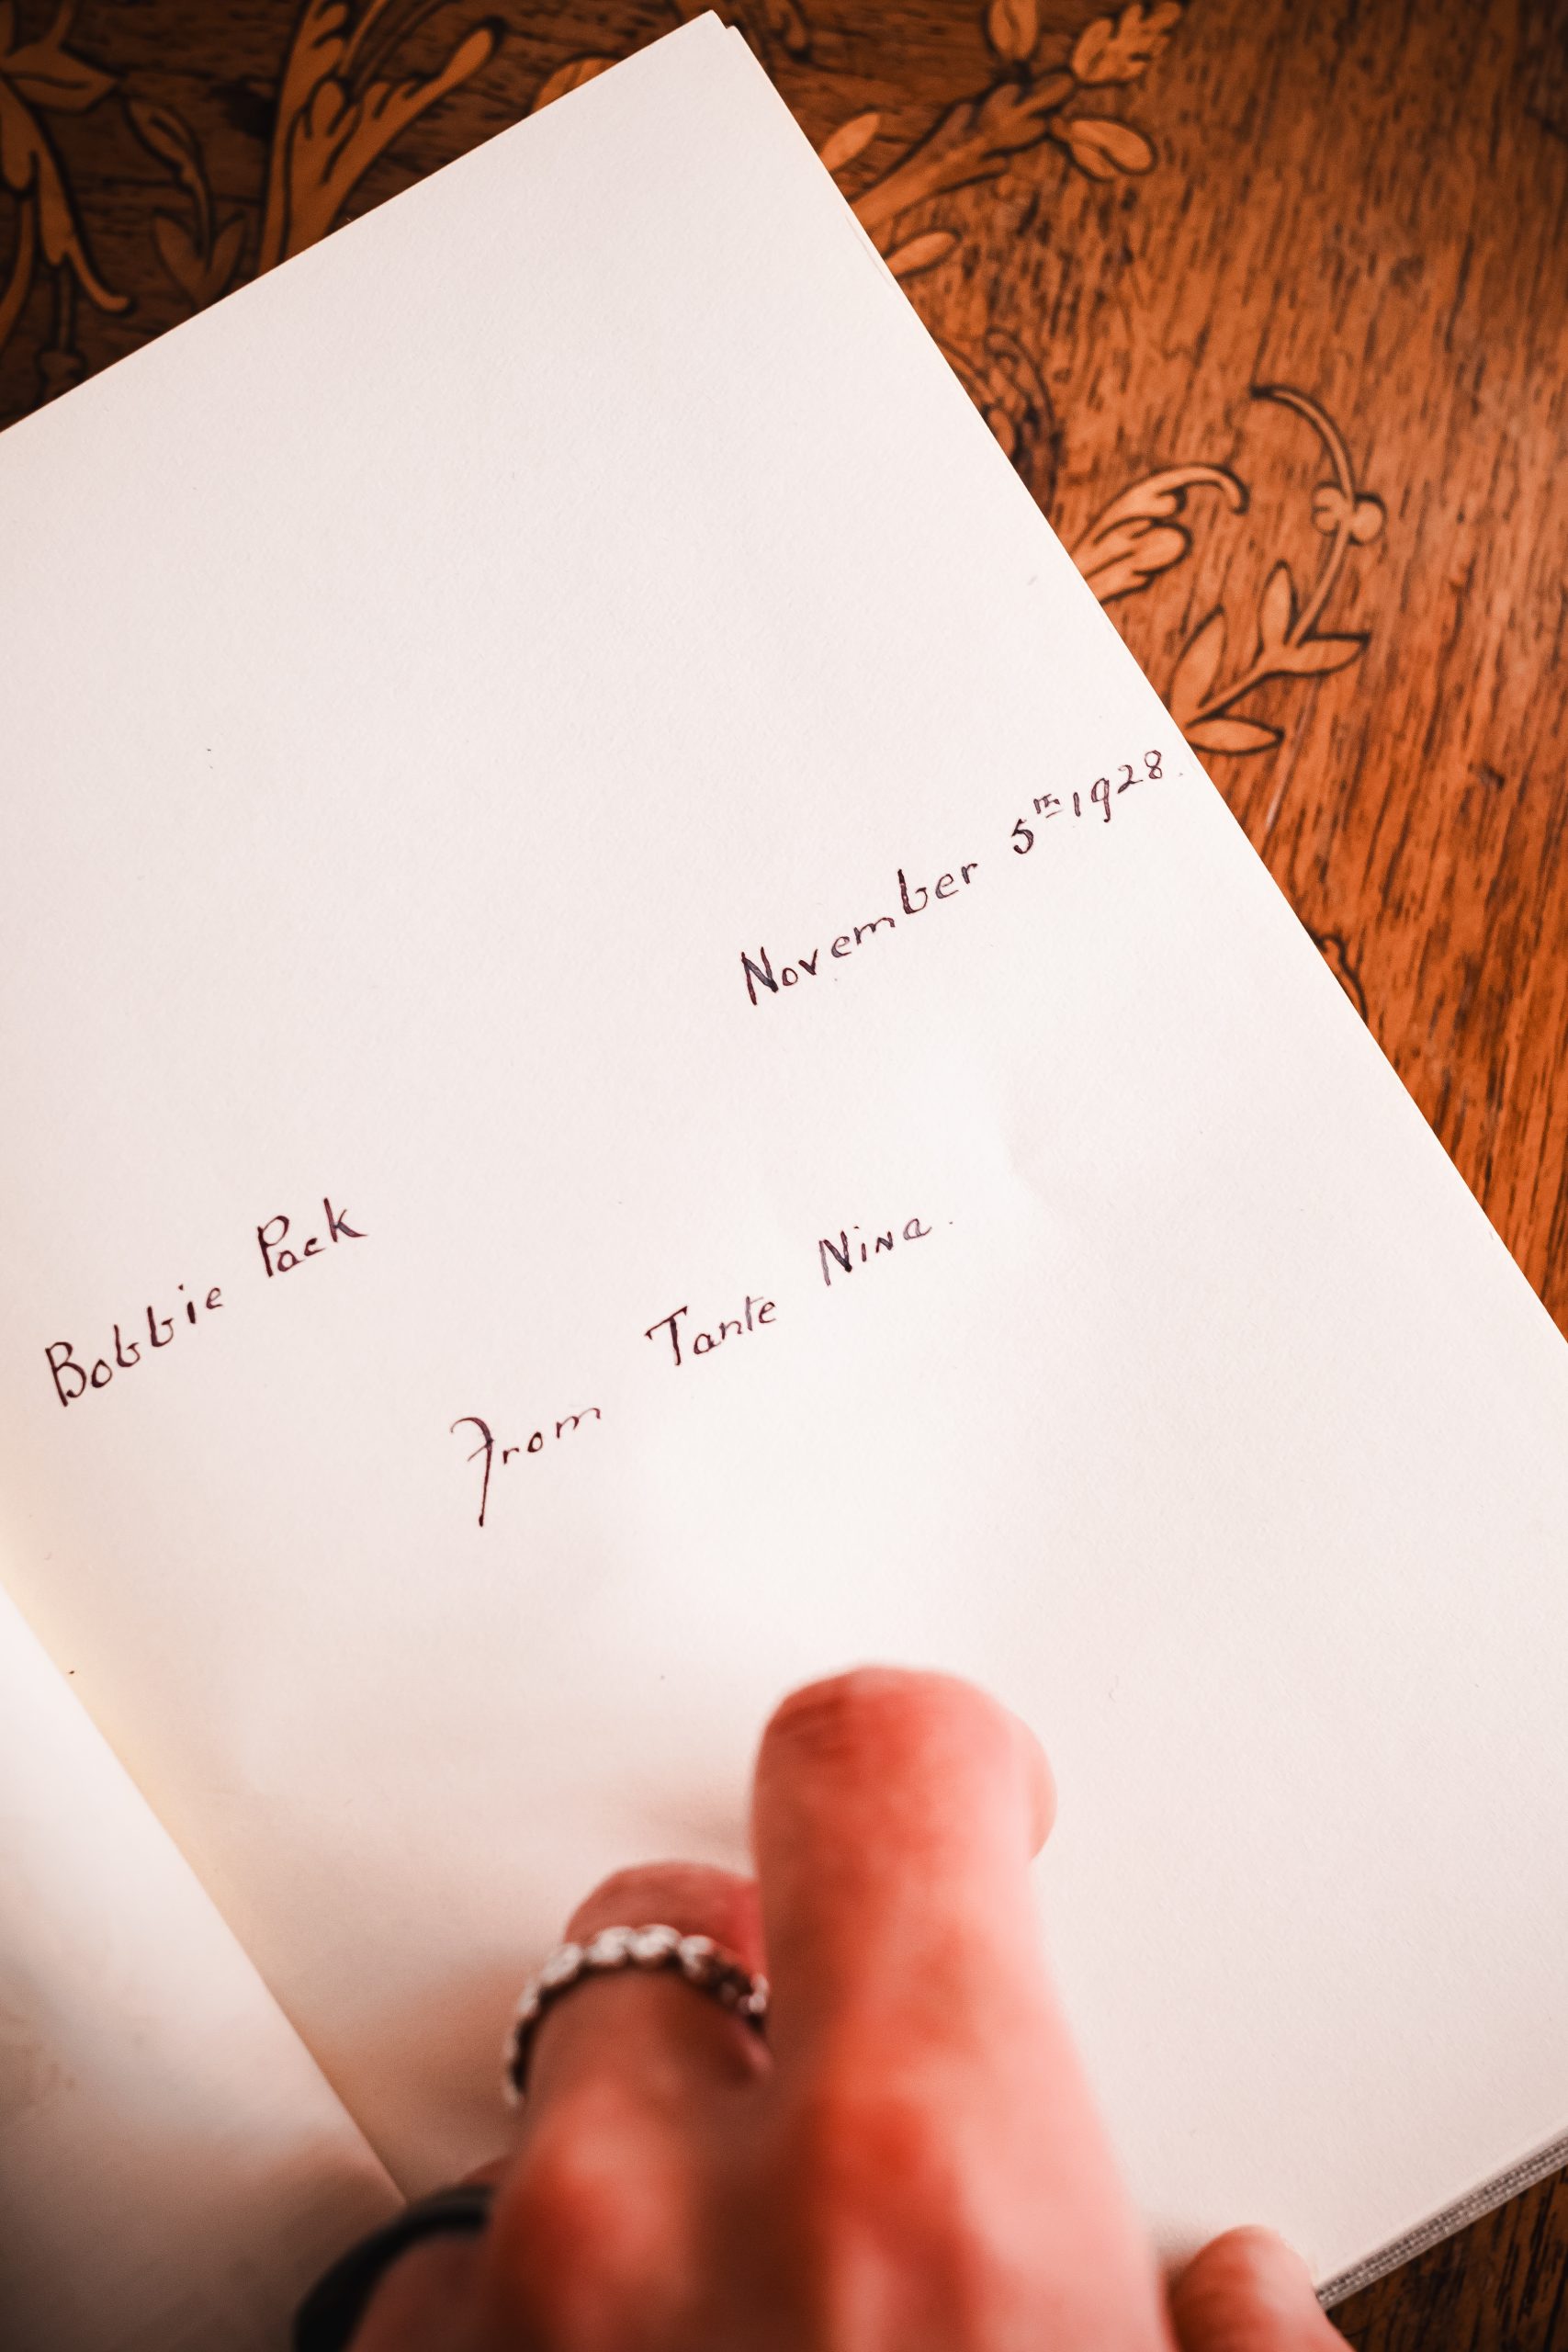 November 5th 1928.
Bobbie Pack
From Tante Nina.